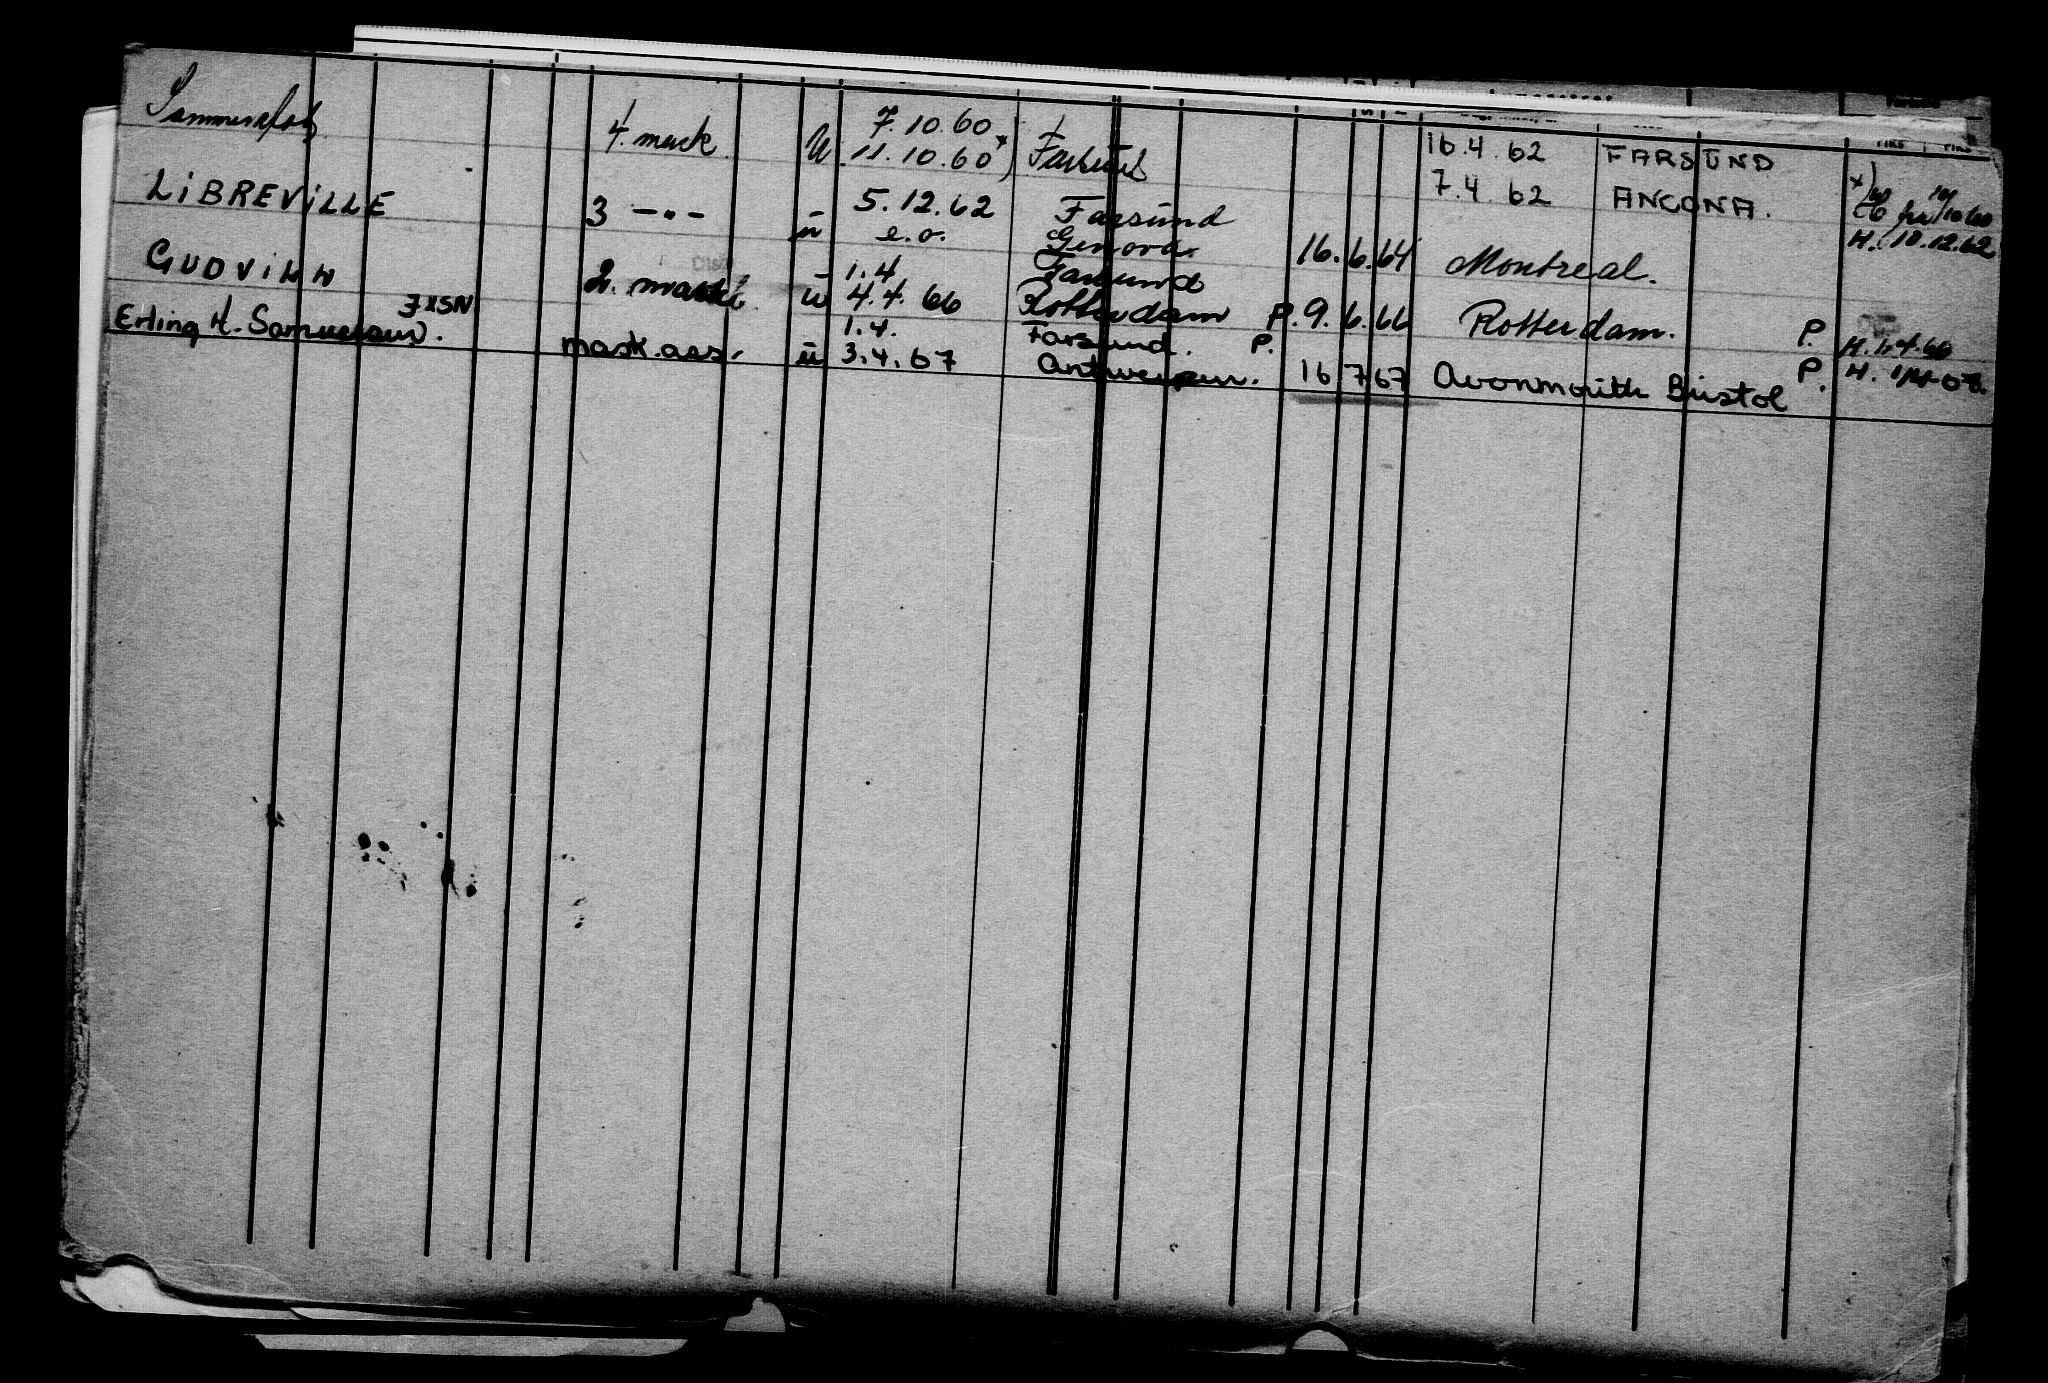 7.10.60 16.4.62 FARSUND
4. mask U 11.10.60 x) Farsund 7.4.62 ANCONA. x)
LIBREVILLE 3 -"- ū 5.12.62 Farsund 10/10 60
e.o. Genova 16.6.64 Montreal. H. 10.12.62
GUDVINN 2. mask ū 1.4 Farsund
4.4.66 Rotterdam P. 9.6.66 Rotterdam. P. H. 1.4.66
JXSN 1.4. Farsund. P.
Erling H. Samuelsen. mask.ass. ū 3.4.67 Antwerpen. 16 7 67 Avonmouth Bristol P. H.